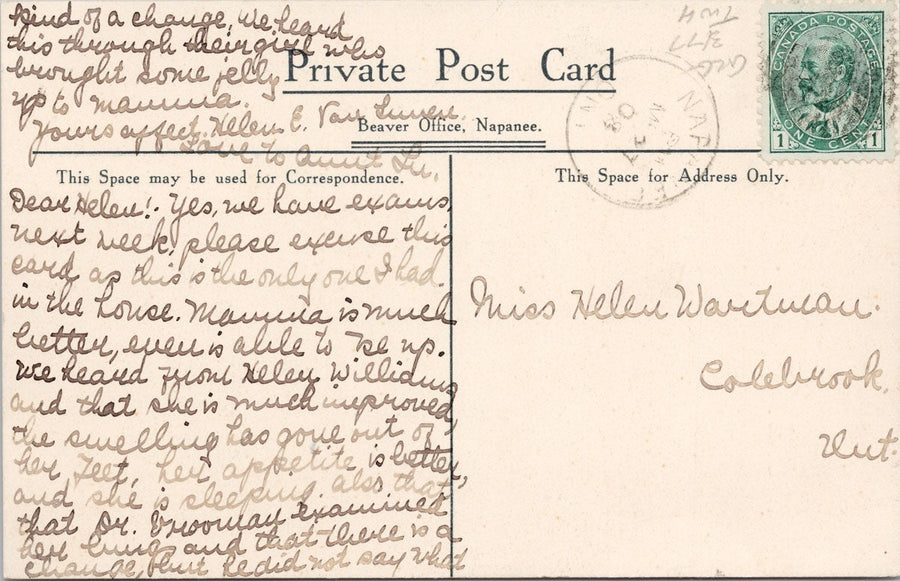 kind of a change, we heard
this through their girl who
brought some jelly
up to mamma.
Yours affect. Helen E. Van Luven.
Love to Aunt Lu.
Private Post Card
Beaver Office, Napanee.
CANADA POSTAGE
1 ONE CENT 1
NAPANEE
ONT
08
This Space may be used for Correspondence.
Dear Helen! Yes, we have exams,
next week, please excuse this
card as this is the only one I had
in the house. Mamma is much
better, even is able to be up.
We heard from Helen Williams
and that she is much improved,
the swelling has gone out of
her feet, her appetite is better,
and she is sleeping. also that
that Dr. Vrooman examined
her lung and that there is a
change, but he did not say what
This Space for Address Only.
Miss Helen Wartman.
Colebrook,
Ont.